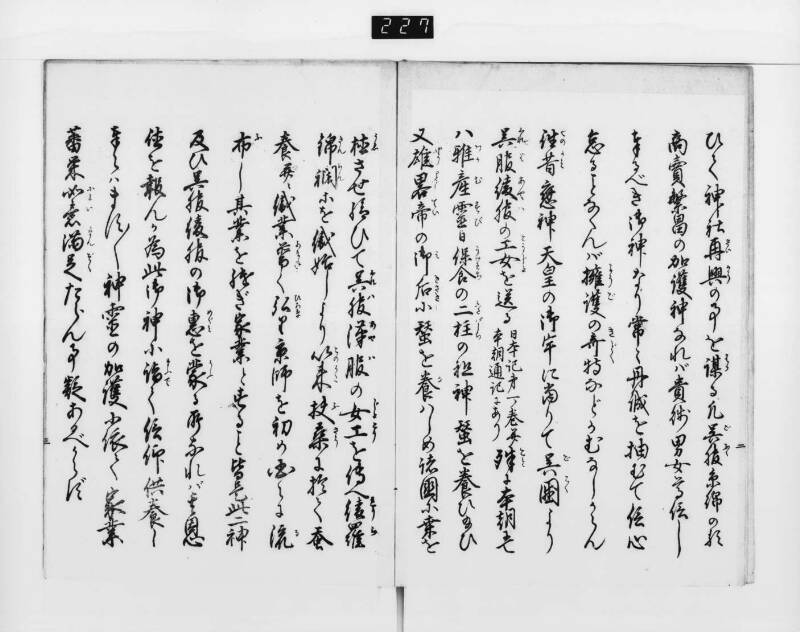 227
ひく神社再興の事を謀る凡呉服糸綿の類
商賣繁昌の加護神なれバ貴賤男女尊信し
奉るべき御神なり常に丹誠を抽むて信心
怠ることなくんバ擁護の奇特などかむなしからん
往昔應神天皇の御宇に当りて呉國より
呉服綾服の工女を送る
日本記才十巻并
本朝通記にあり
殊に本朝
ハ雅産霊日保食の二柱の祖神蚕を養ひ給ひ
又雄畧帝の御后に蚕を養ハしめ諸國に桒を
植させ給ひて呉服漢服の女工を傳へ綾羅
綿綱等を織始しより以来扶桒に於て蚕
養并織業常に弘り京師を初め国々に流
布し其業を継ぎ家業とすること皆是此二神
及び呉服綾服の御惠を蒙る所なれバ其恩
徳を報んか為此御神に詣て信仰供養し
奉らハます〳〵神霊の加護に依て家業
蕃栄如意満足たらん事疑あるべからず
二
三